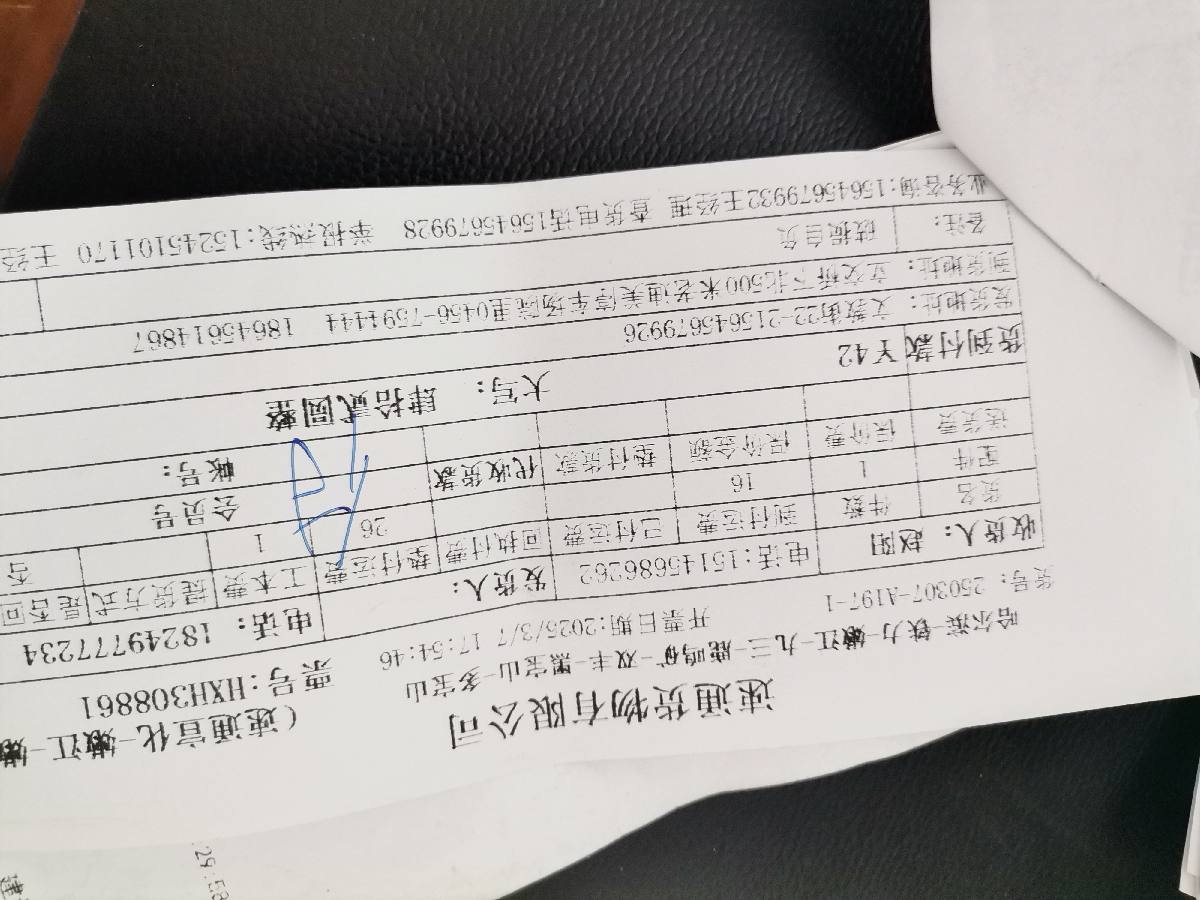 速通货物有限公司 (速通宣化-嫩江-嫩
哈尔滨-铁力-嫩江-九三-鹿鸣矿-双丰-黑宝山-多宝山
货号:250307-A197-1 开票日期:2025/3/7 17:54:46 票号:HXH308861
收货人: 赵阳 电话:15145686262 发货人: 电话: 18249777234
货名 件数 到付运费 已付运费 回执付费 垫付运费 工本费 提货方式 是否回
配件 1 16 26 1 否
送货费 保价费 保价金额 垫付货款 代收货款 会员号
帐号:
货到付款 ¥42 大写: 肆拾贰圆整
发货地址: 文教街22-215645679926
到货地址: 立交桥下北500米老迪美停车场院里0456-7594444 18645614867
备注: 破损自负
业务咨询:15645679932王经理 查货电话15645679928 举报热线:15245101170 王经
:29:58